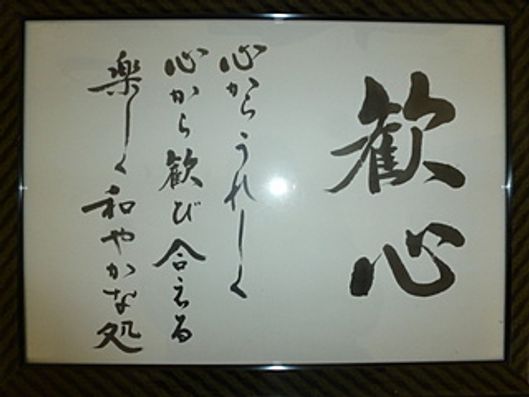 歓心
心からうれしく
心から歓び合える
楽しく和やかな処